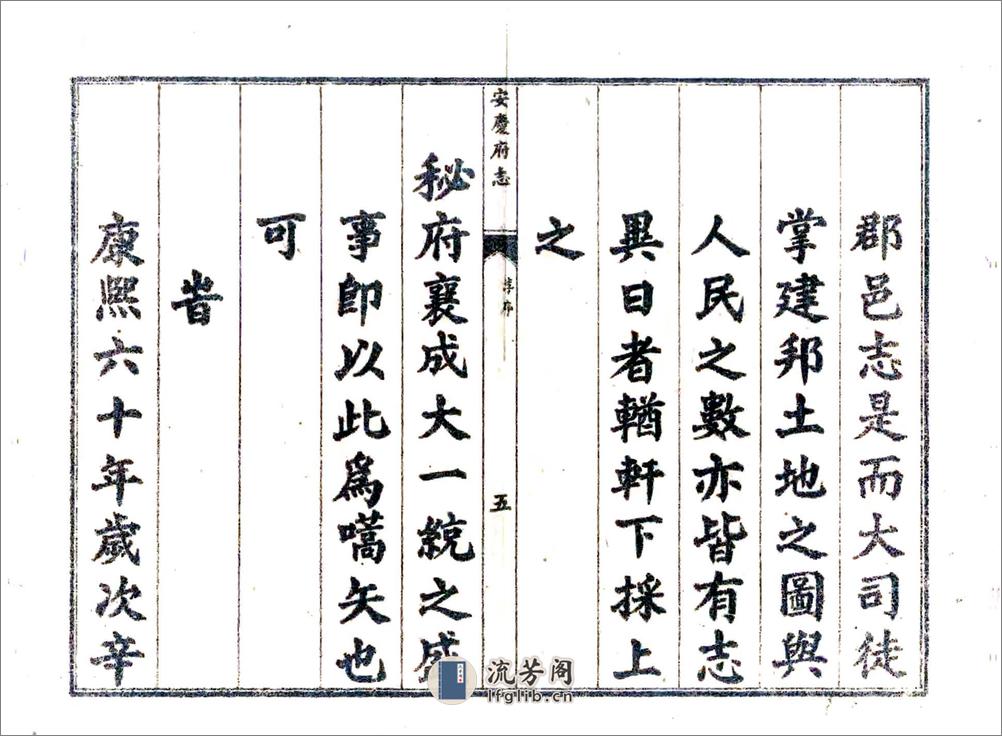 郡邑志是而大司徒
掌建邦土地之圖與
人民之數亦皆有志
異日者輶軒下採上
之
安慶府志
序
五
秘府襄成大一統之盛
事即以此為嚆矢也
可
旹
康熙六十年歲次辛
流芳阁
lfglib.cn